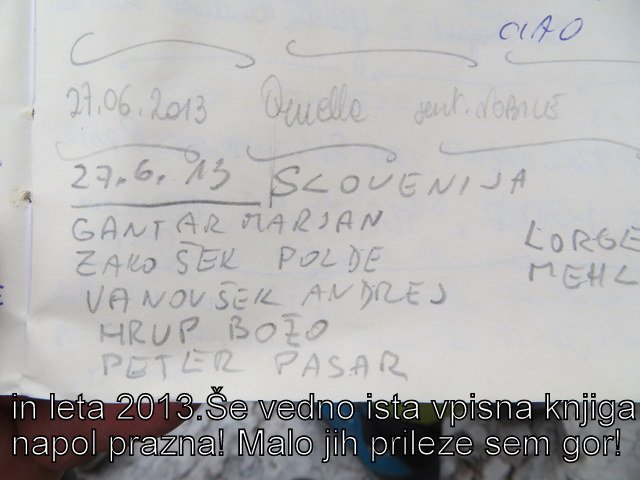 CIAO
27.06.2013 Ornella sent. NOBILE
27.6.13 SLOVENIJA
GANTAR MARJAN
ZAKOŠEK POLDE LORGE
VANOVŠEK ANDREJ MEHL
HRUP BOŽO
PETER PASAR
in leta 2013.Še vedno ista vpisna knjiga
napol prazna! Malo jih prileze sem gor!